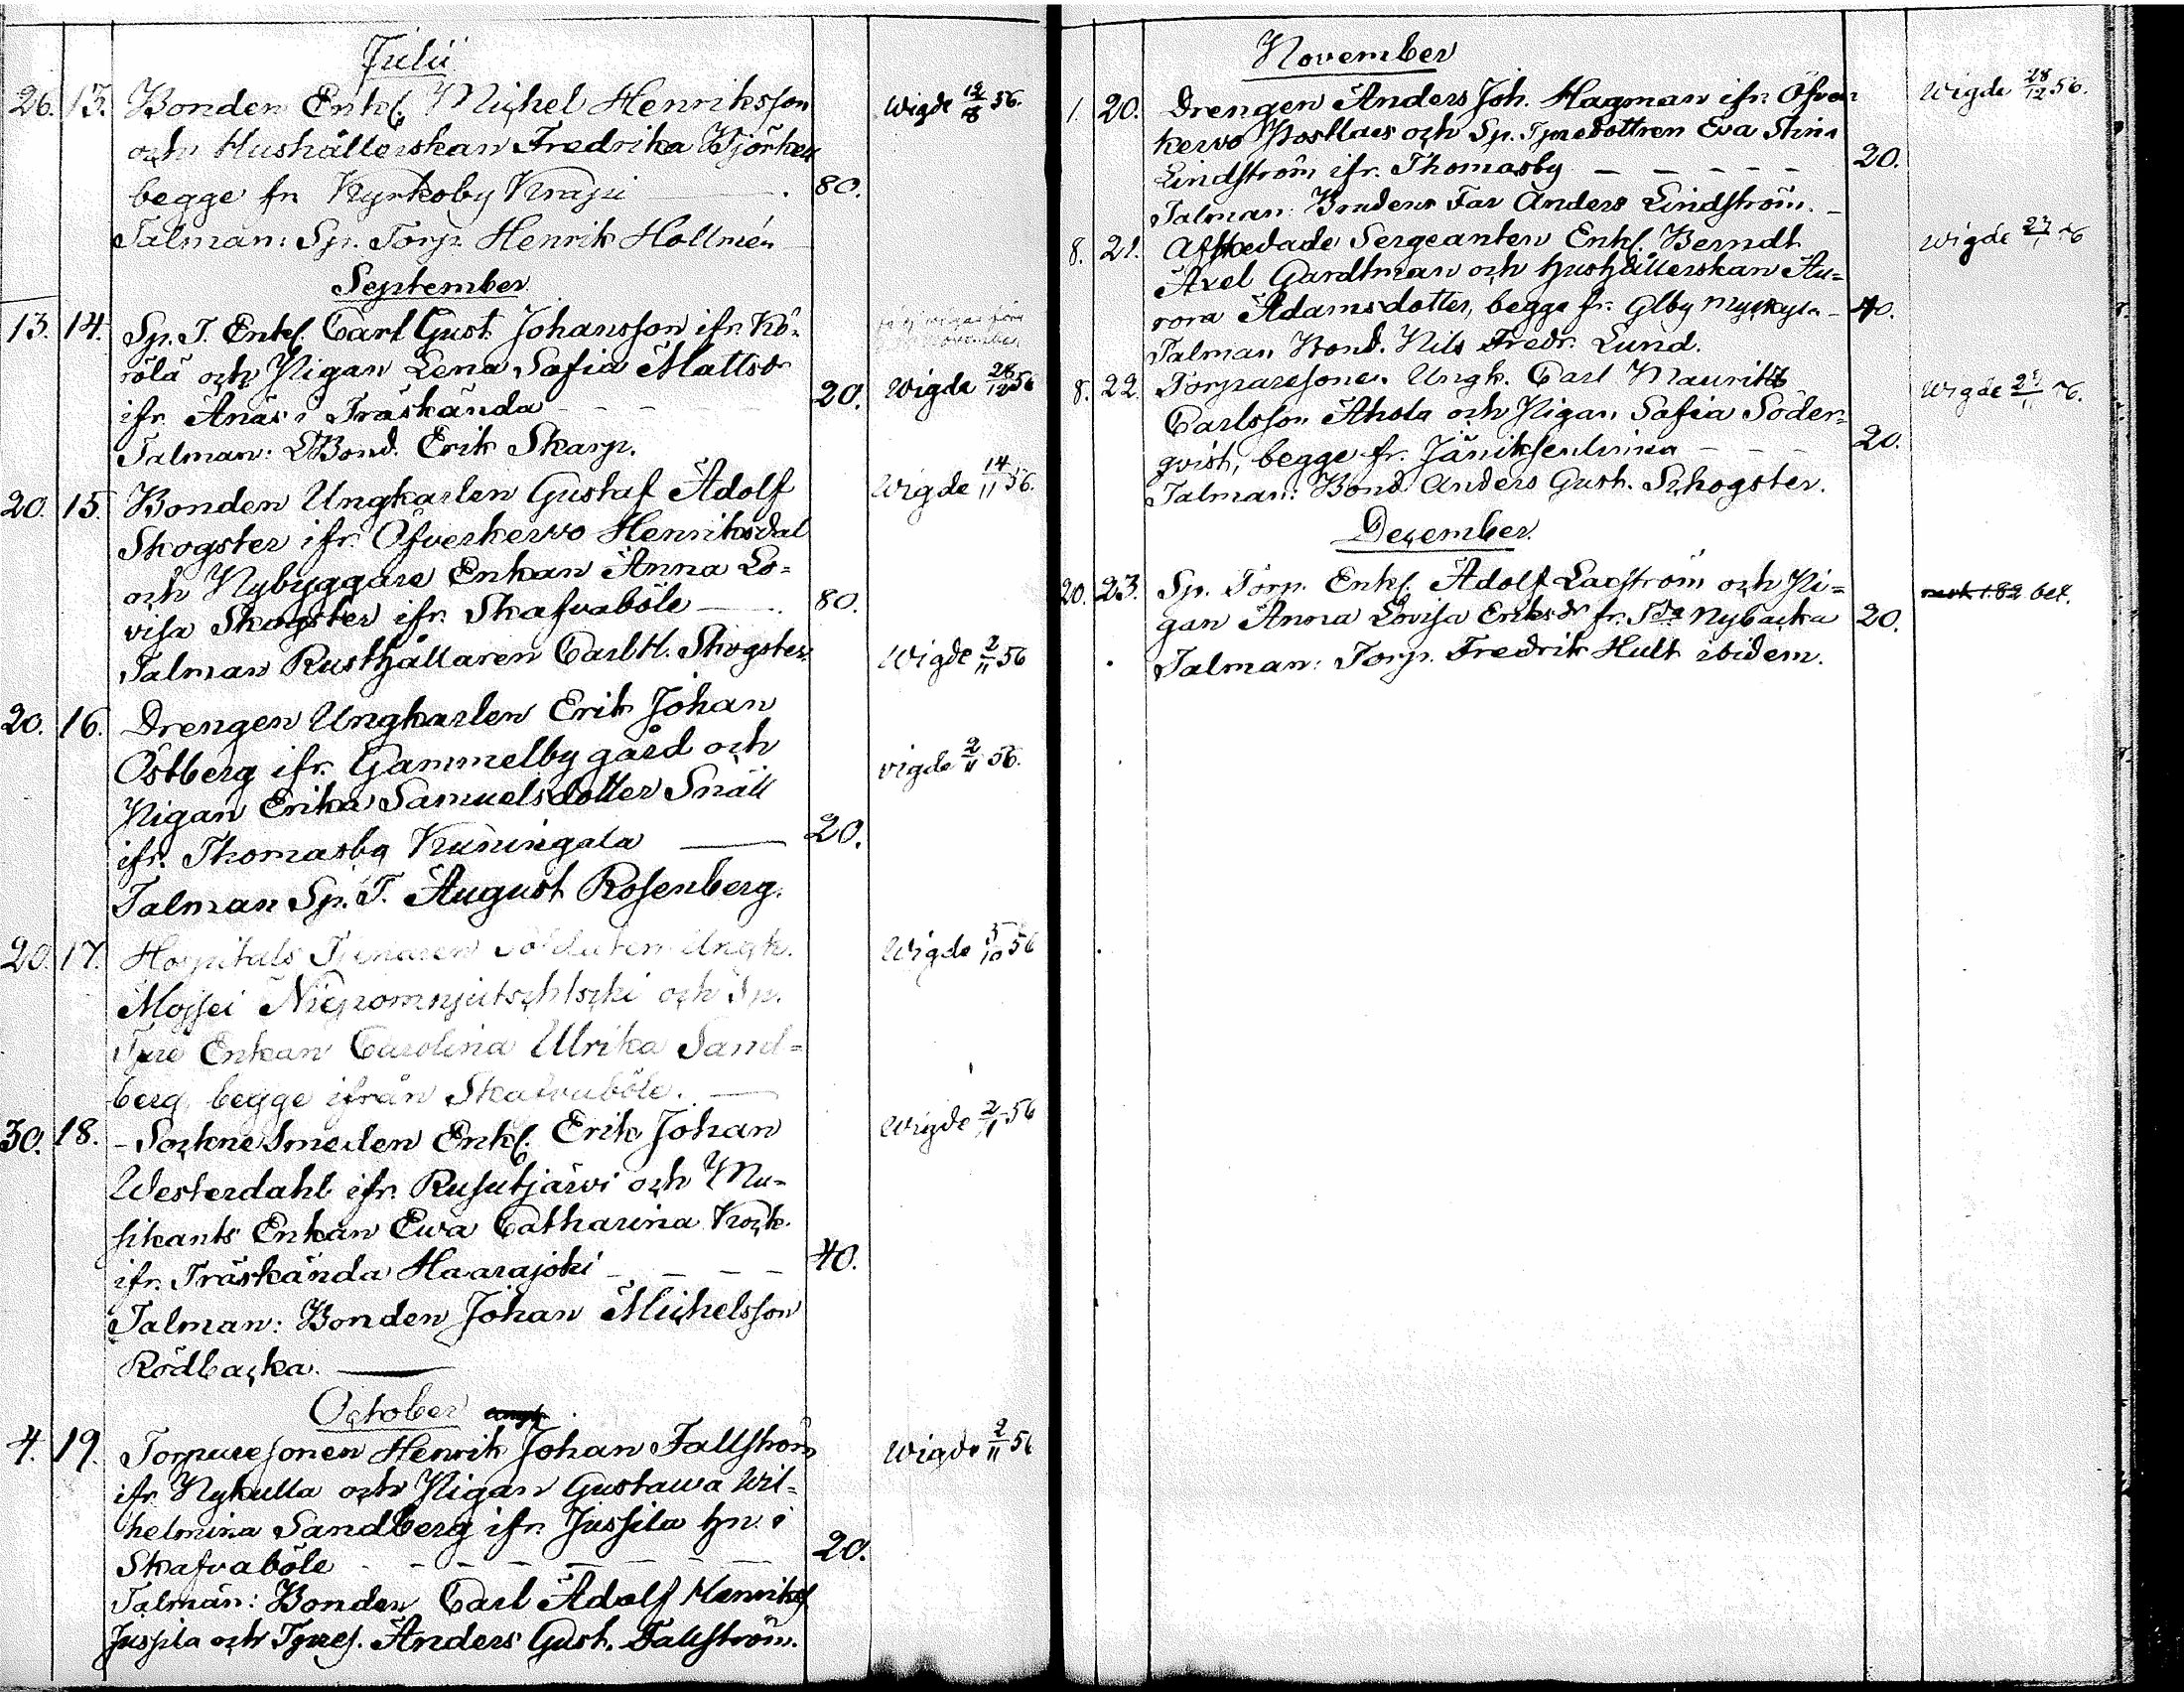 Julii
26. 13. Bonden Enkl. Michel Henriksson Wigde 12/8 56.
och Hushållerskan Fredrika Björken
begge fr. Kyrkoby Knapi — 80.
Talman: Sp. Torp. Henrik Hollmén
September
13. 14. Sp. T. Enkl. Carl Gust. Johansson ifr. Kö-
rölä och Pigan Lena Safia Mattsdr
ifr. Ånäs i Träskända - - - 20. Wigde 26/12 56
Talman: Bond. Erik Skarp.
20. 15. Bonden Ungkarlen Gustaf Adolf Wigde 14/11 56.
Skogster ifr. Öfverkervo Henriksdal
och Nybyggare Enkan Anna Lo-
visa Skogster ifr. Skafvaböle — 80.
Talman Rusthållaren Carl H. Skogster. Wigde 2/11 56
20. 16. Drengen Ungkarlen Erik Johan
Östberg ifr. Gammelby gård och vigde 2/11 56.
Pigan Erika Samuelsdotter Snäll
ifr. Thomasby Kuningala — 20.
Talman Sp. T. August Rosenberg.
20. 17. Hospitals Tjenaren Soldaten Ungk. Wigde 5/10 56
Mojsei Niepomnjutschtschi och Sp.
Tjure Enkan Carolina Ulrika Sand-
berg, begge ifrån Skafvaböle. —
30. 18. Sockne Smeden Enkl. Erik Johan Wigde 2/11 56
Westerdahl ifr. Rusutjärvi och Mu-
sikants Enkan Ewa Catharina Kock
ifr. Träskända Haarajoki - - - - 40.
Talman: Bonden Johan Michelsson
Rödbacka. —
October
4. 19. Torparesonen Henrik Johan Fallström Wigde 2/11 56
ifr. Nykulla och Pigan Gustawa Wil-
helmina Sandberg ifr. Jussila hn. i
Skafvaböle - - - - - - 20.
Talman: Bonden Carl Adolf Henriks.
Jussila och Tpres. Anders Gust. Fallström.
November
1. 20. Drengen Anders Joh. Hagman ifr. Öfver Wigde 28/12 56.
kervo Postlars och Sp. Tpredottren Eva Stina
Lindström ifr. Thomasby - - - - - 20.
Talman: Brudens Far Anders Lindström.
8. 21. Afskedade Sergeanten Enkl. Berndt Wigde
Axel Gardtman och Hushållerskan Au-
rora Adamsdotter, begge fr. Glby - 40.
Talman Bond. Nils Fredr. Lund.
8. 22. Torparesonen Ungk. Carl Maurits Wigde
Carlsson Ahola och Pigan Safia Söder-
qvist, begge fr. Jäniksenlinna - - - 20.
Talman: Bond. Anders Gust. Skogster.
December.
20. 23. Sp. Torp. Enkl. Adolf Lagström och Pi- bet.
gan Anna Lovisa Eriksdr fr. Nybacka 20.
Talman: Torp. Fredrik Hult ibidem.